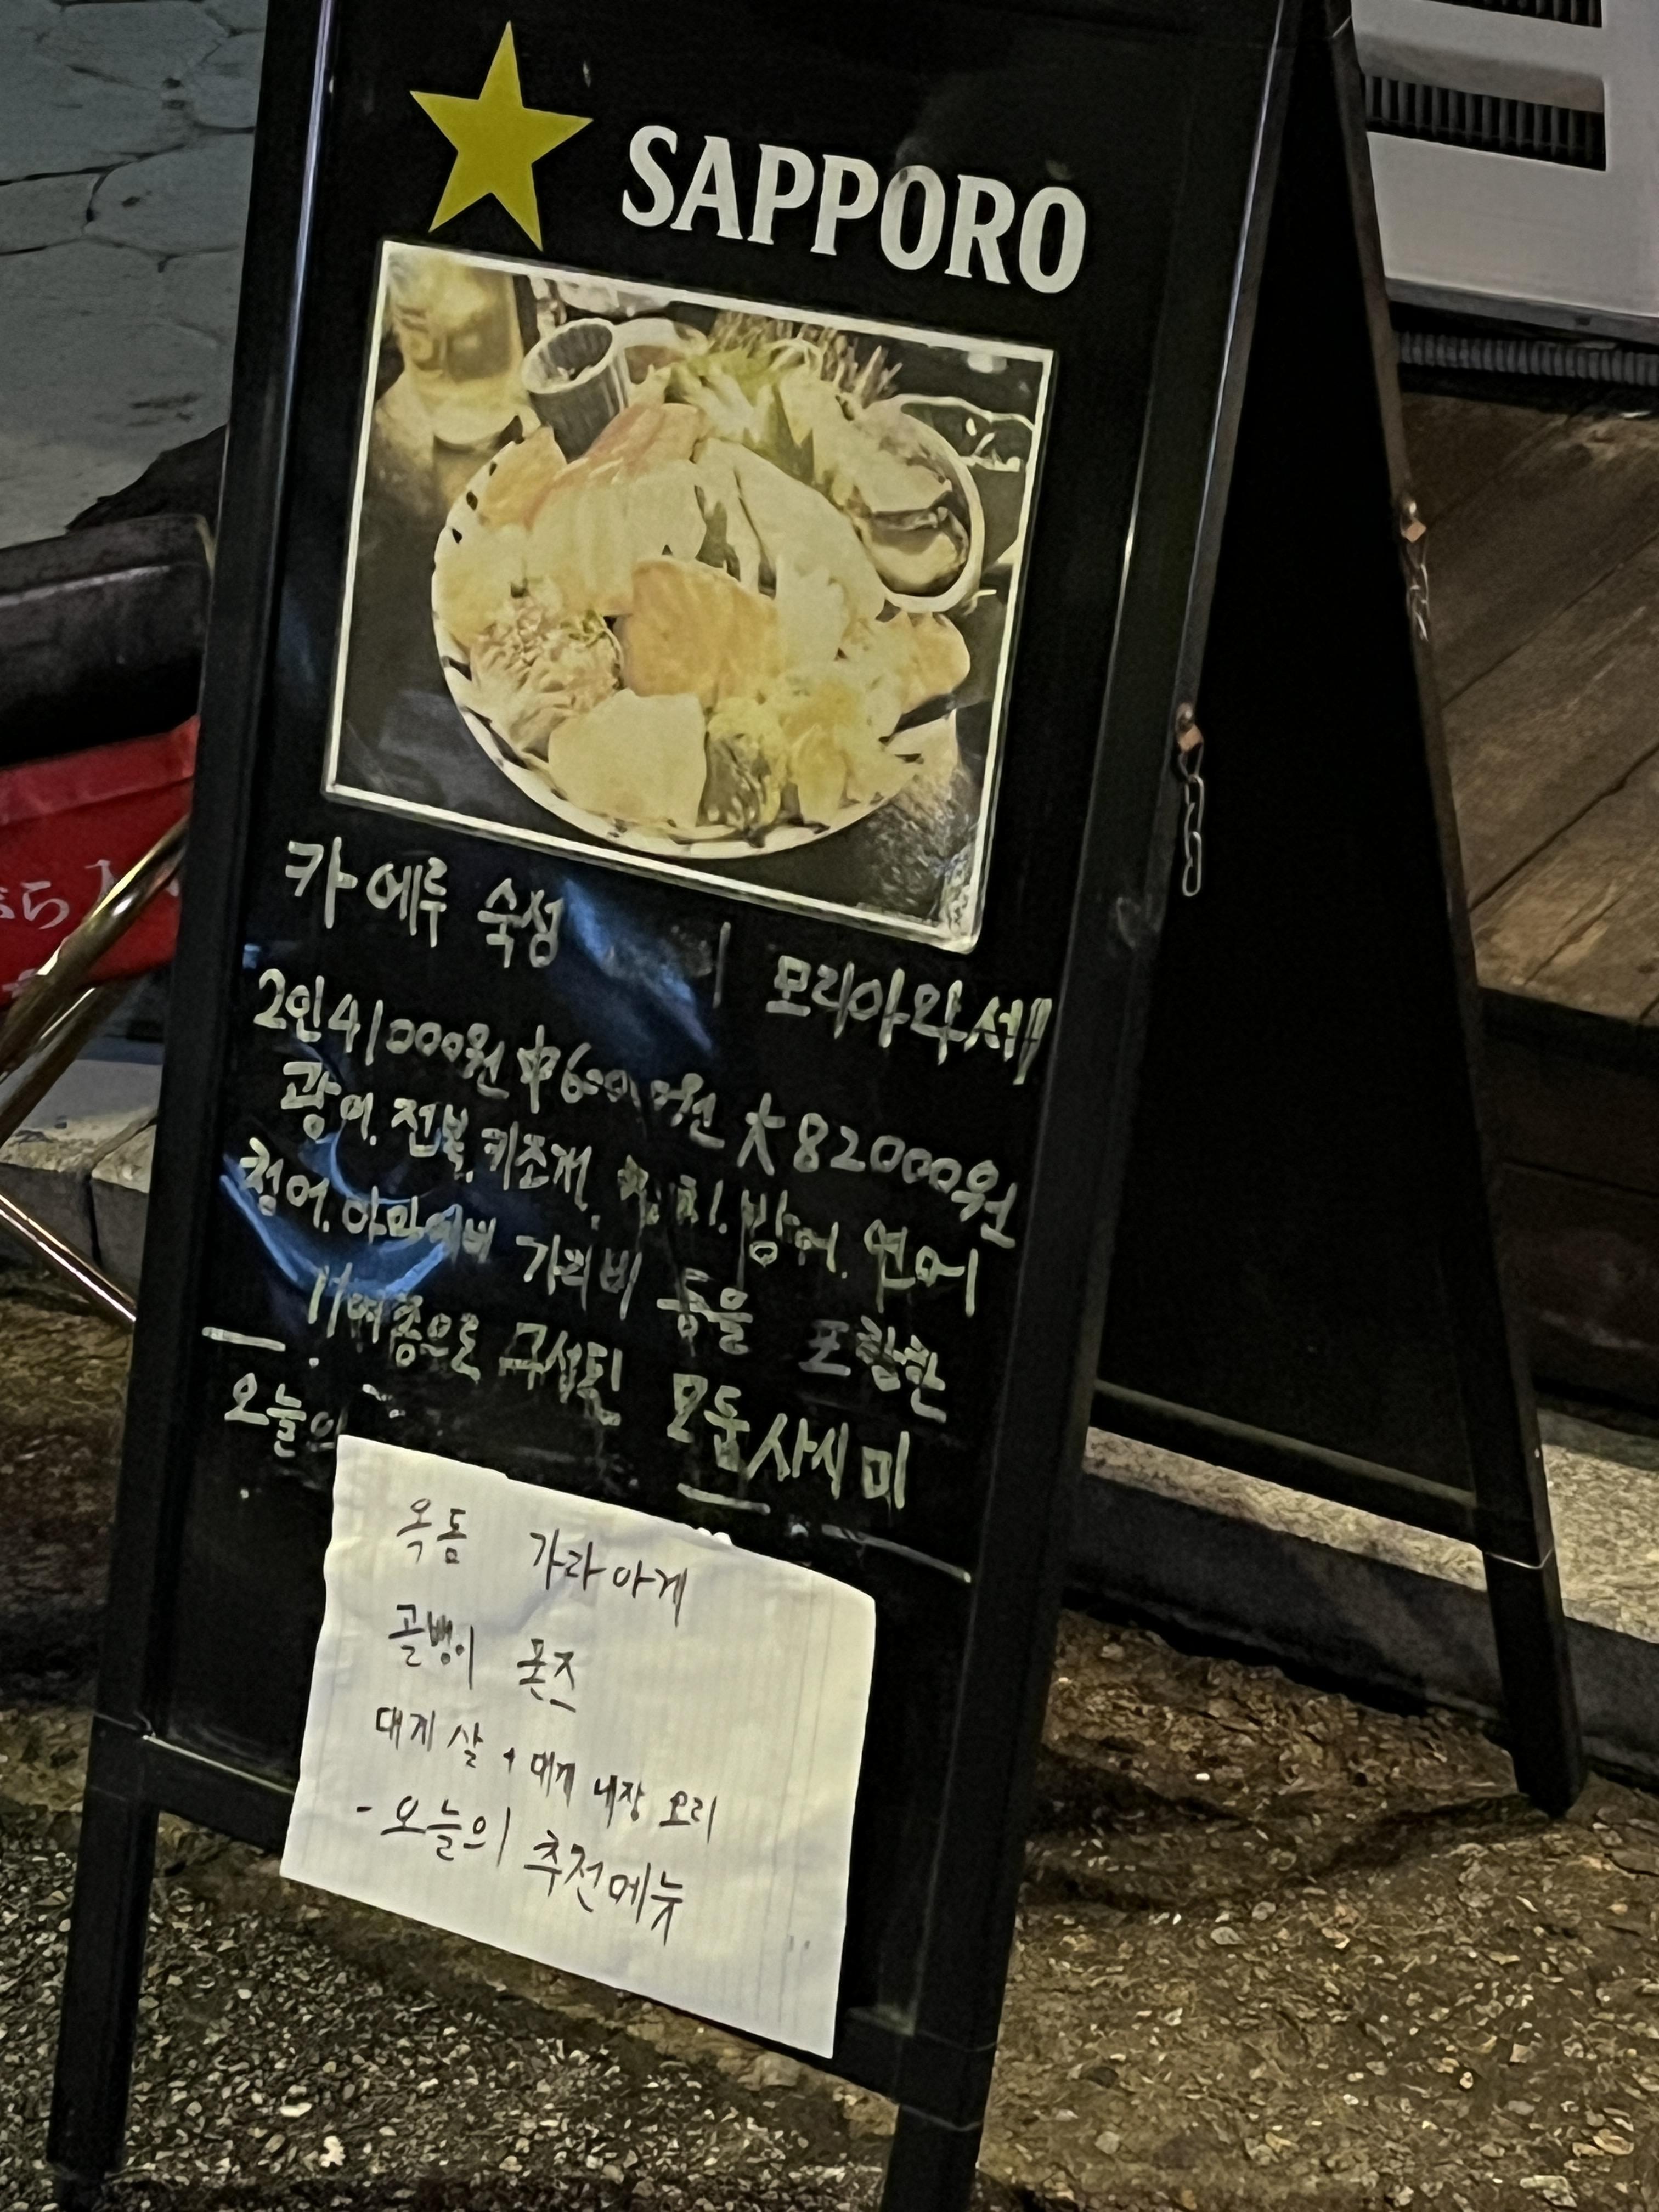 SAPPORO
카에루 숙성 모리아와세
2인 41000원 中 6 원 大 82000원
광어. 전복. 키조개. 방어. 연어
청어. 아마에비 가리비 등을 포함한
11여종으로 구성된 모둠사시미
오늘의
옥돔 가라아게
골뱅이 몬즈
대게 살 + 대게 내장 오리
- 오늘의 추천메뉴